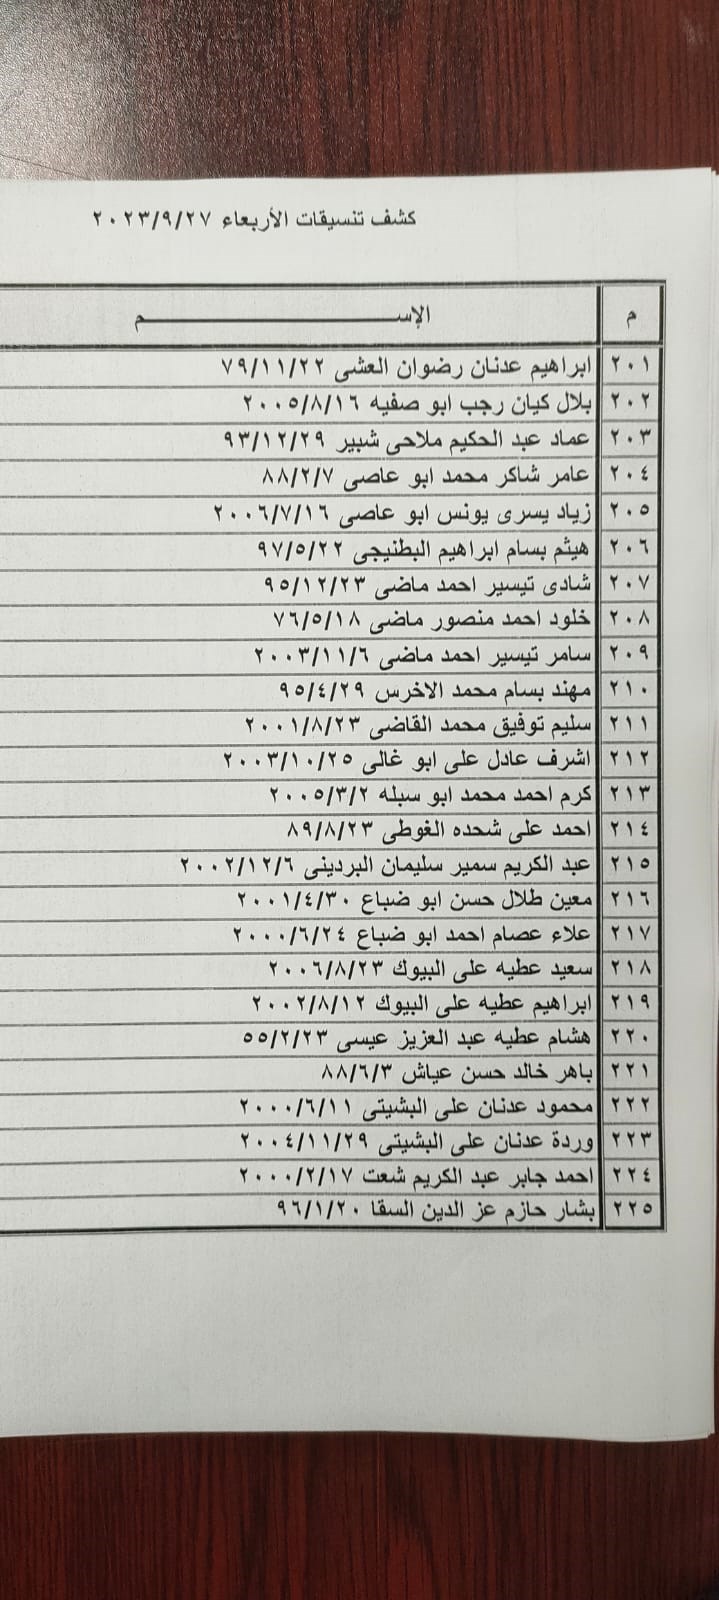 كشف تنسيقات الأربعاء ٢٠٢٣/٩/٢٧
م الإســــــــــــــم
٢٠١ ابراهيم عدنان رضوان العشى ٧٩/١١/٢٢
٢٠٢ بلال كيان رجب ابو صفيه ٢٠٠٥/٨/١٦
٢٠٣ عماد عبد الحكيم ملاحى شبير ٩٣/١٢/٢٩
٢٠٤ عامر شاكر محمد ابو عاصى ٨٨/٢/٧
٢٠٥ زياد يسرى يونس ابو عاصى ٢٠٠٦/٧/١٦
٢٠٦ هيثم بسام ابراهيم البطنيجى ٩٧/٥/٢٢
٢٠٧ شادى تيسير احمد ماضى ٩٥/١٢/٢٣
٢٠٨ خلود احمد منصور ماضى ٧٦/٥/١٨
٢٠٩ سامر تيسير احمد ماضى ٢٠٠٣/١١/٦
٢١٠ مهند بسام محمد الاخرس ٩٥/٤/٢٩
٢١١ سليم توفيق محمد القاضى ٢٠٠١/٨/٢٣
٢١٢ اشرف عادل على ابو غالى ٢٠٠٣/١٠/٢٥
٢١٣ كرم احمد محمد ابو سبله ٢٠٠٥/٣/٢
٢١٤ احمد على شحده الغوطى ٨٩/٨/٢٣
٢١٥ عبد الكريم سمير سليمان البردينى ٢٠٠٢/١٢/٦
٢١٦ معين طلال حسن ابو ضباع ٢٠٠١/٤/٣٠
٢١٧ علاء عصام احمد ابو ضباع ٢٠٠٠/٦/٢٤
٢١٨ سعيد عطيه على البيوك ٢٠٠٦/٨/٢٣
٢١٩ ابراهيم عطيه على البيوك ٢٠٠٢/٨/١٢
٢٢٠ هشام عطيه عبد العزيز عيسى ٥٥/٢/٢٣
٢٢١ باهر خالد حسن عياش ٨٨/٦/٣
٢٢٢ محمود عدنان على البشيتى ٢٠٠٠/٦/١١
٢٢٣ وردة عدنان على البشيتى ٢٠٠٤/١١/٢٩
٢٢٤ احمد جابر عبد الكريم شعت ٢٠٠٠/٢/١٧
٢٢٥ بشار حازم عز الدين السقا ٩٦/١/٢٠